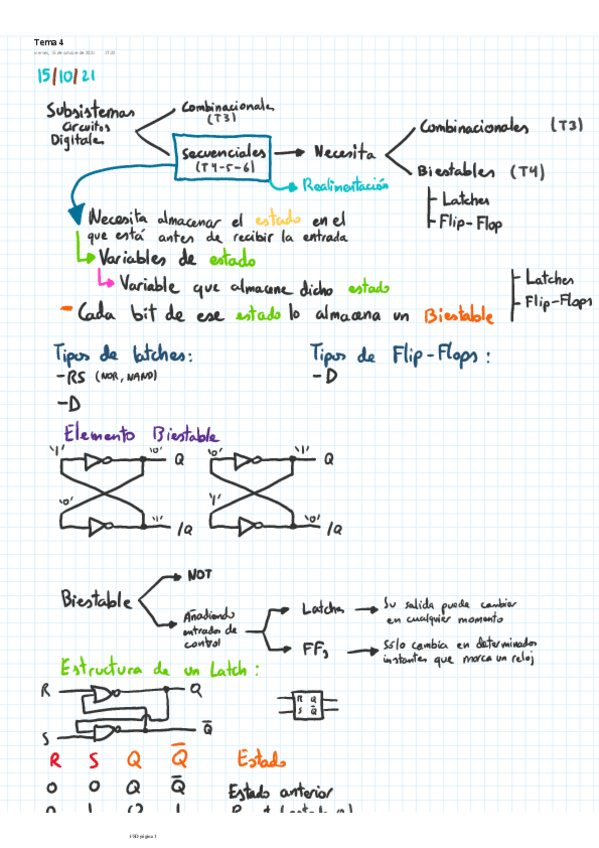 Tema 4
viernes, 15 de octubre de 2021
15/10/21
Subsistemas
Circuitos
Digitales
Combinacionales
(T3)
Secuenciales
(T4-5-6)
Necesita
Combinacionales (T3)
Biestables (T4)
- Latches
- Flip-Flop
Realimentación
Necesita almacenar el estado en el
que está antes de recibir la entrada
Variables de estado
Variable que almacene dicho estado
- Cada bit de ese estado lo almacena un Biestable
- Latches
- Flip-Flops
Tipos de latches:
- RS (NOR, NAND)
- D
Tipos de Flip-Flops:
- D
Elemento Biestable
'1' '0' Q '0' '1' Q
'0' '1' /Q '1' '0' /Q
Biestable
NOT
Añadiendo
entradas de
control
Latches
Su salida puede cambiar
en cualquier momento
FFs
Sólo cambia en determinados
instantes que marca un reloj
Estructura de un Latch:
R Q
S Q̅
R Q
S Q̅
R S Q Q̅ Estado
0 0 Q Q̅ Estado anterior
FSD página 1